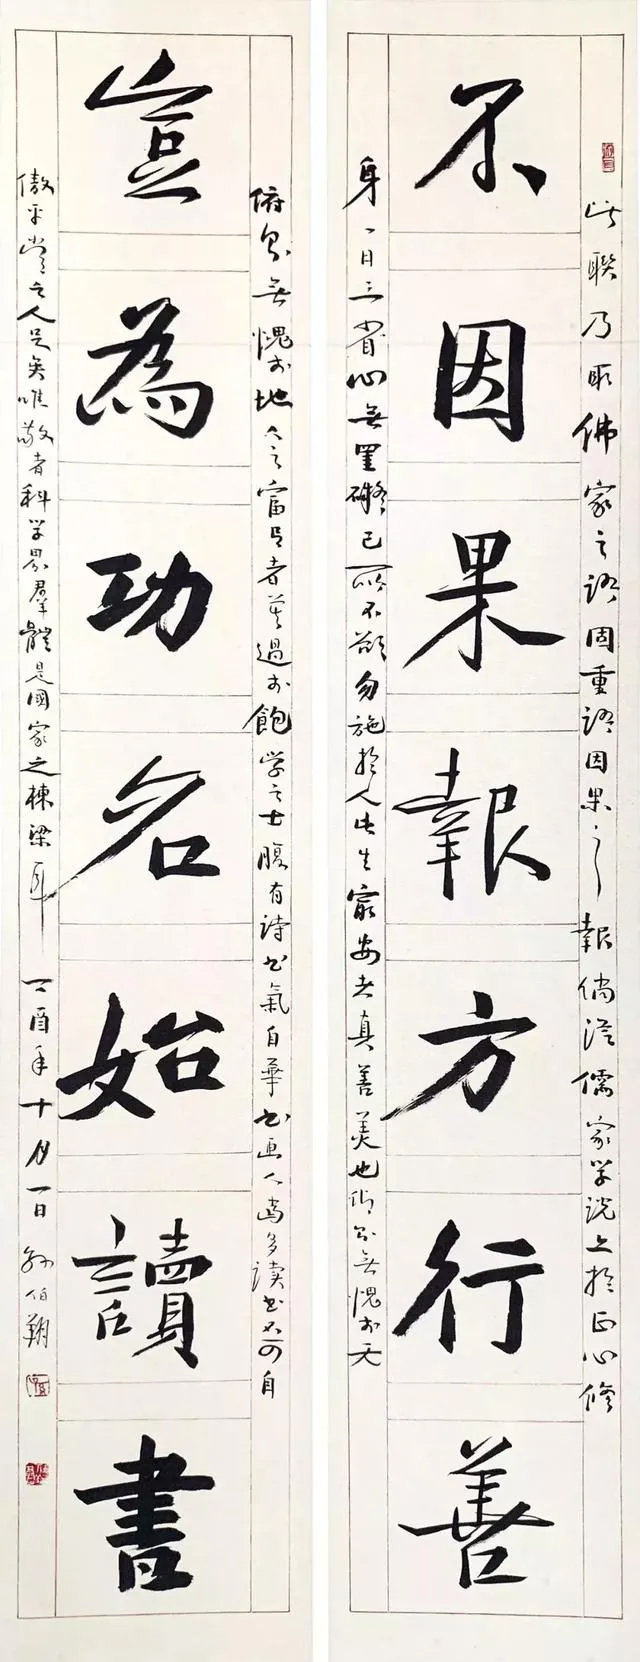 此聯乃取佛家之語因重語因果之報倘從儒家学説上於正心修
不因果報方行善
身一日三省心無罣礙己所不欲勿施於人此生安者真善美也仰無愧於天
俯無愧於地富者莫過於飽学之士腹有詩书氣自華书画人當多读书不可自
豈為功名始讀書
傲平常之人足矣唯敬者科学界群體是國家之棟梁耳 丁酉年十月一日 孙伯翔